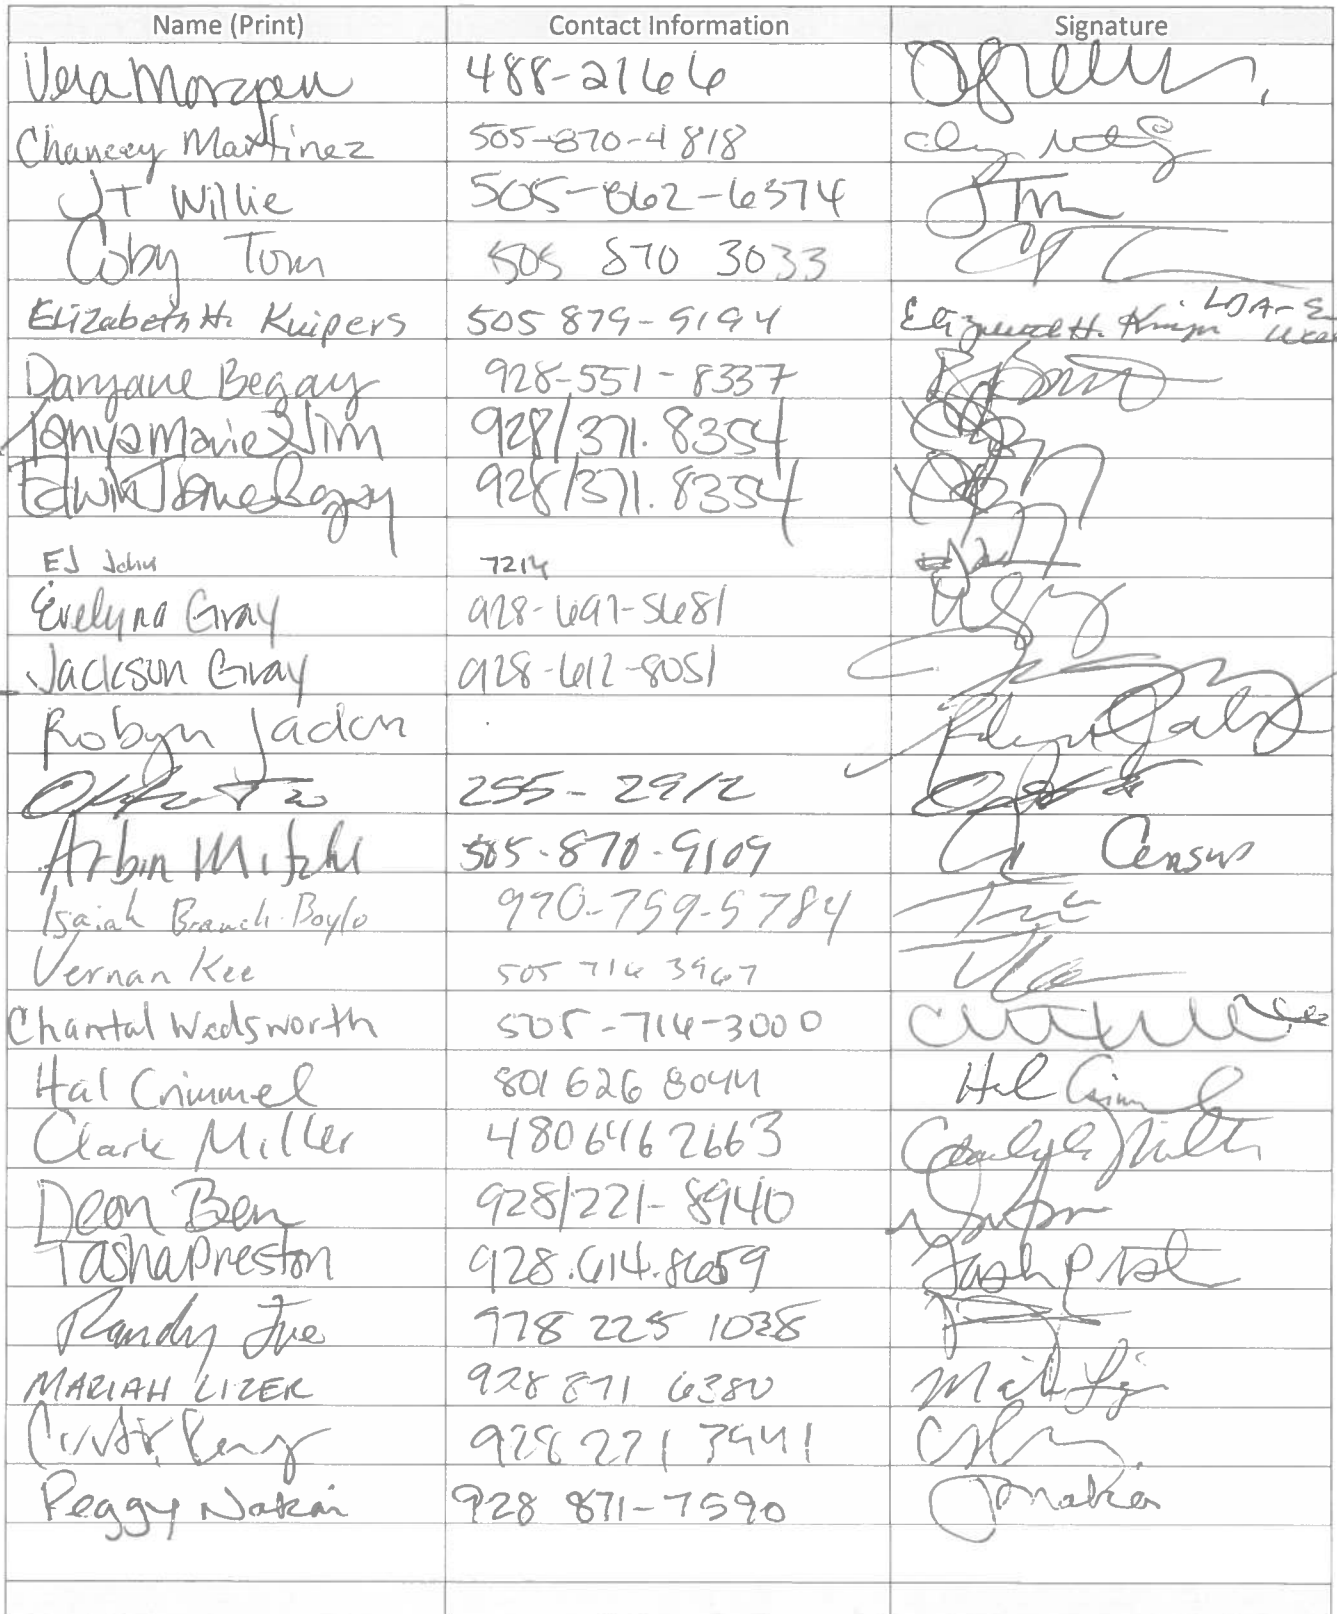 Name (Print) Contact Information Signature
Vera Morgan 488-2166
Chancey Martinez 505-870-4818
JT Willie 505-862-6374
Coby Tom 505 870 3033
Elizabeth H. Kuipers 505 879-9194 Elizabeth H. Kuipers
Daryane Begay 928-551-8337
Tanya Marie Jim 928/371.8354
Edwin Begay 928/371.8354
EJ John 7214
Evelyna Gray 928-697-5681
Jackson Gray 928-612-8051
Robyn Jackson
255-2912
Arbin Mitchell 505-870-9109 Census
Isaiah Branch-Boyle 970-759-5784
Vernan Kee 505 716 3967
Chantal Wadsworth 505-716-3000
Hal Crimmel 801 626 8044 Hal Crimmel
Clark Miller 480 646 2663 Miller
Deon Ben 928/221-8940
Tasha Preston 928.614.8659
Randy 928 225 1038
MARIAH LIZER 928 871 6380
928 221 3941
Peggy Nakai 928 871-7590 PNakai